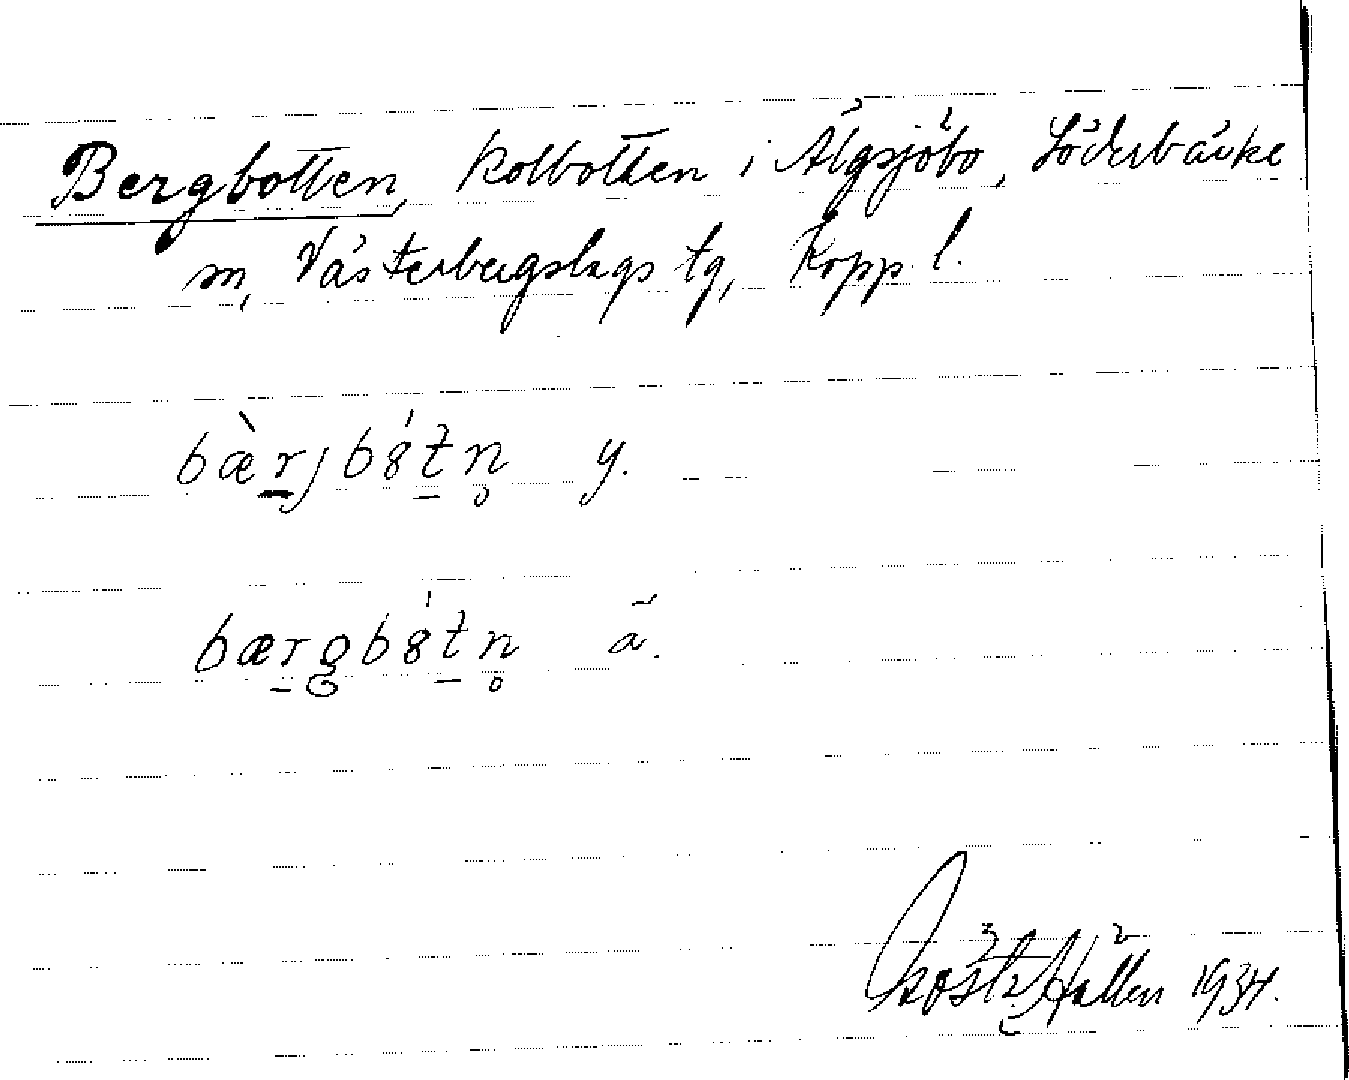 Bergbotten, kolbotten i Älgsjöbo, Söderbärke
m, Västerbergslags tg, Kopp. l.
bæ̀r̲jb8́t̲n̥ y.
bærgb8́t̲n̥ ä.
Gösta Hallén 1934.